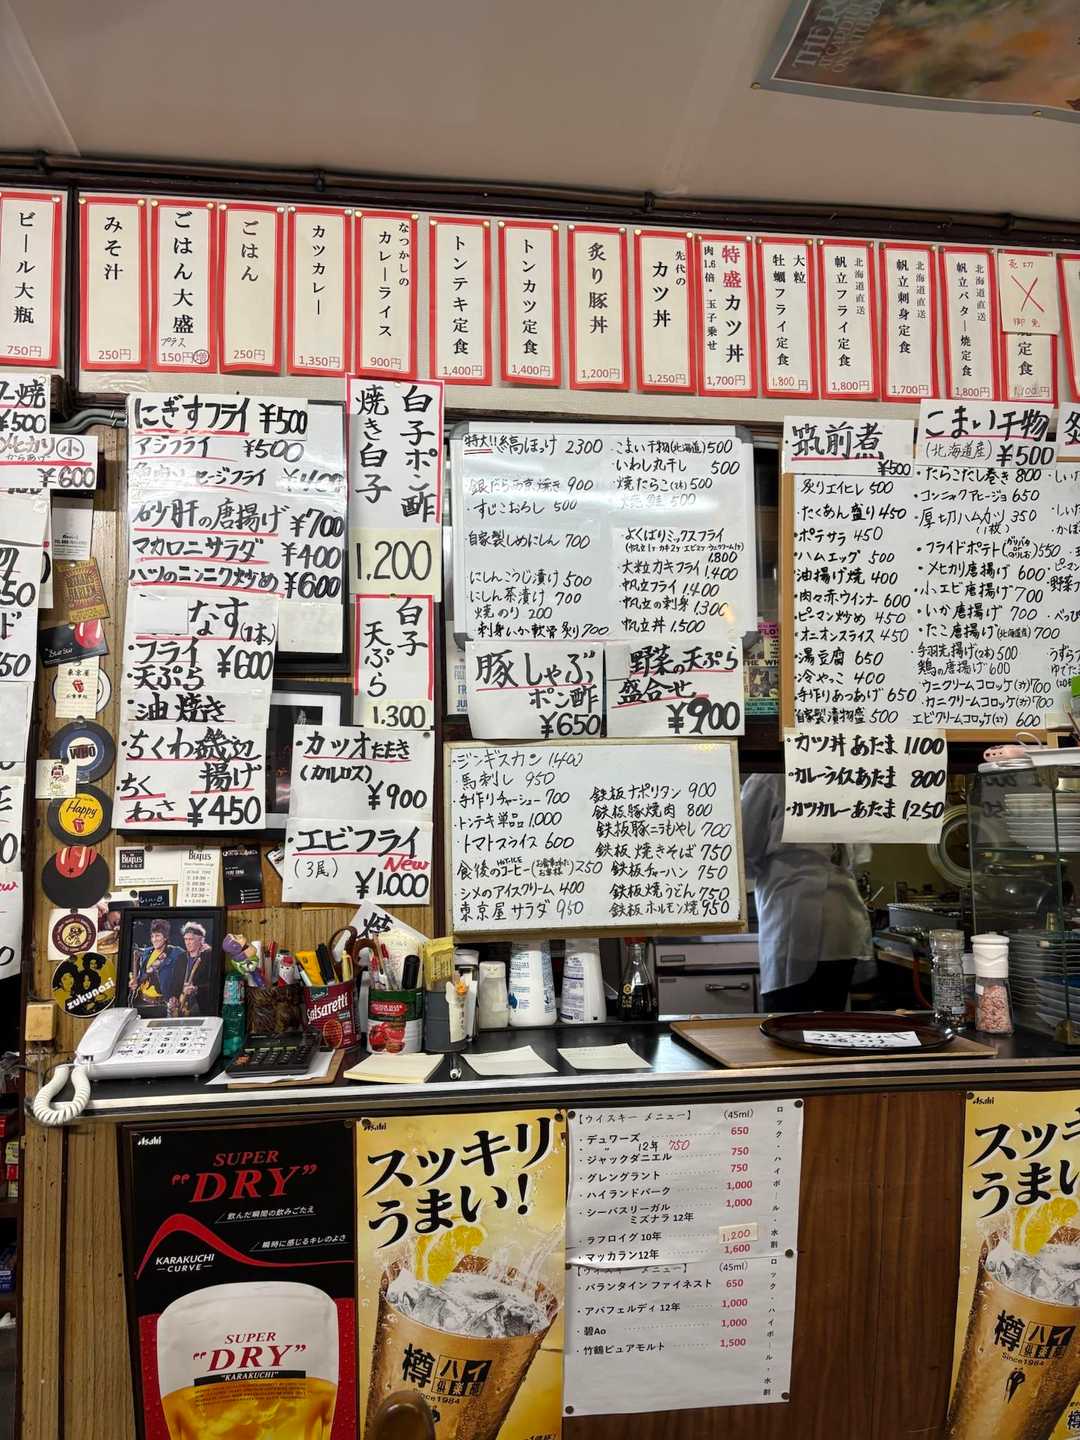 ビール大瓶
750円
みそ汁
250円
ごはん大盛
プラス
150円増
ごはん
250円
カツカレー
1,350円
なつかしの
カレーライス
900円
トンテキ定食
1,400円
トンカツ定食
1,400円
炙り豚丼
1,200円
先代の
カツ丼
1,250円
特盛カツ丼
肉1.6倍・玉子乗せ
1,700円
大粒
牡蠣フライ定食
1,800円
北海道直送
帆立フライ定食
1,800円
北海道直送
帆立刺身定食
1,700円
北海道直送
帆立バター焼定食
1,800円
売切
御免
焼定食
1,100円
¥500
メヒカリ 小
からあげ
¥600
にぎすフライ ¥500
アジフライ ¥500
セージフライ ¥400
砂肝の唐揚げ ¥700
マカロニサラダ ¥400
ハツのニンニク炒め ¥600
なす(1本)
・フライ ¥600
・天ぷら
・油焼き
・ちくわ磯辺
揚げ
ちく
わさ ¥450
白子ポン酢
焼き白子
1,200
白子
天ぷら
1,300
・カツオたたき
(カルロス)
¥900
・エビフライ
(3尾) New
¥1,000
特大!!縞ほっけ 2300
・銀だら西京焼き 900
・すじこおろし 500
・自家製しめにしん 700
・にしんこうじ漬け 500
・にしん茶漬け 700
・焼のり 200
・刺身いか軟骨炙り 700
・こまい干物(北海道) 500
・いわし丸干し 500
・焼たらこ(1本) 500
・焼鮭 500
・よくばりミックスフライ
1,800
大粒カキフライ 1,400
帆立フライ 1,400
帆立の刺身 1,300
帆立丼 1,500
豚しゃぶ
ポン酢
¥650
野菜の天ぷら
盛合せ
¥900
・ジンギスカン 1400
・馬刺し 950
・手作りチャーシュー 700
・トンテキ単品 1,000
・トマトスライス 600
食後のコーヒー HOT・ICE 250
シメのアイスクリーム 400
東京屋サラダ 950
鉄板ナポリタン 900
鉄板豚焼肉 800
鉄板豚ニラもやし 700
鉄板焼きそば 750
鉄板チャーハン 750
鉄板焼うどん 750
鉄板ホルモン焼 950
筑前煮
¥500
こまい干物
(北海道産) ¥500
炙りエイヒレ 500
・たくあん盛り 450
・ポテサラ 450
・ハムエッグ 500
・油揚げ焼 400
・肉々赤ウインナー 600
・ピーマン炒め 450
・オニオンスライス 450
・湯豆腐 650
・冷やっこ 400
・手作りあつあげ 650
・自家製漬物盛 500
・たらこだし巻き 800
・コンニャクアヒージョ 650
・厚切ハムカツ 350
(1枚)
・フライドポテト 550
・メヒカリ唐揚げ 600
・小エビ唐揚げ 700
・いか唐揚げ 700
・たこ唐揚げ(北海道産) 700
・手羽先揚げ(2本) 500
・鶏の唐揚げ 600
・ウニクリームコロッケ(2ケ) 700
・カニクリームコロッケ(2ケ) 700
エビクリームコロッケ(2ケ) 600
・カツ丼あたま 1100
・カレーライスあたま 800
・カツカレーあたま 1,250
THE WHO
Happy
The BEATLES
BEATLES
zukunasi
Salsaretti
Asahi
SUPER
"DRY"
飲んだ瞬間の飲みごたえ
瞬時に感じるキレのよさ
KARAKUCHI
CURVE
SUPER
"DRY"
"KARAKUCHI"
Asahi
スッキリ
うまい!
樽ハイ
倶楽部
Since1984
【ウイスキー メニュー】 (45ml)
・デュワーズ 650
〃 12年 750
・ジャックダニエル 750
・グレングラント 750
・ハイランドパーク 1,000
・シーバスリーガル 1,000
ミズナラ 12年
・ラフロイグ 10年 1,200
・マッカラン12年 1,600
ロック・ハイボール・水割
【ウイスキー メニュー】 (45ml)
・バランタイン ファイネスト 650
・アバフェルディ 12年 1,000
・碧Ao 1,000
・竹鶴ピュアモルト 1,500
ロック・ハイボール・水割
Asahi
スッキ
うまい
樽ハイ
倶楽部
Since1984